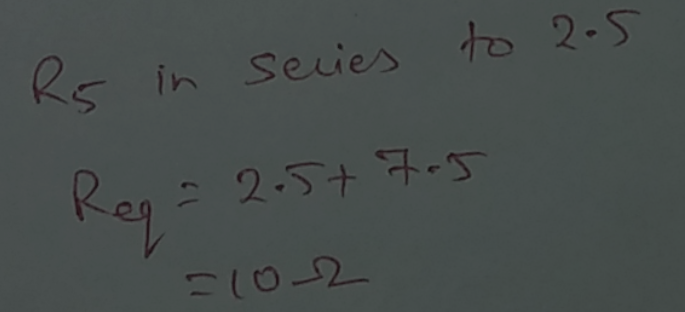 R5 in series to 2.5
Req = 2.5 + 7.5
= 10 Ω